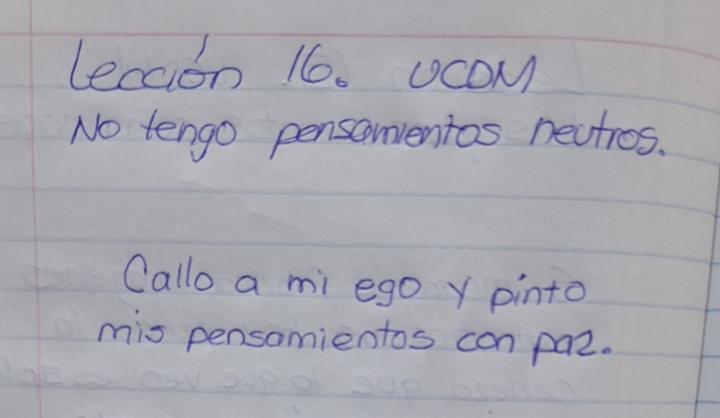 Lección 16. UCDM
No tengo pensamientos neutros.
Callo a mi ego y pinto
mis pensamientos con paz.